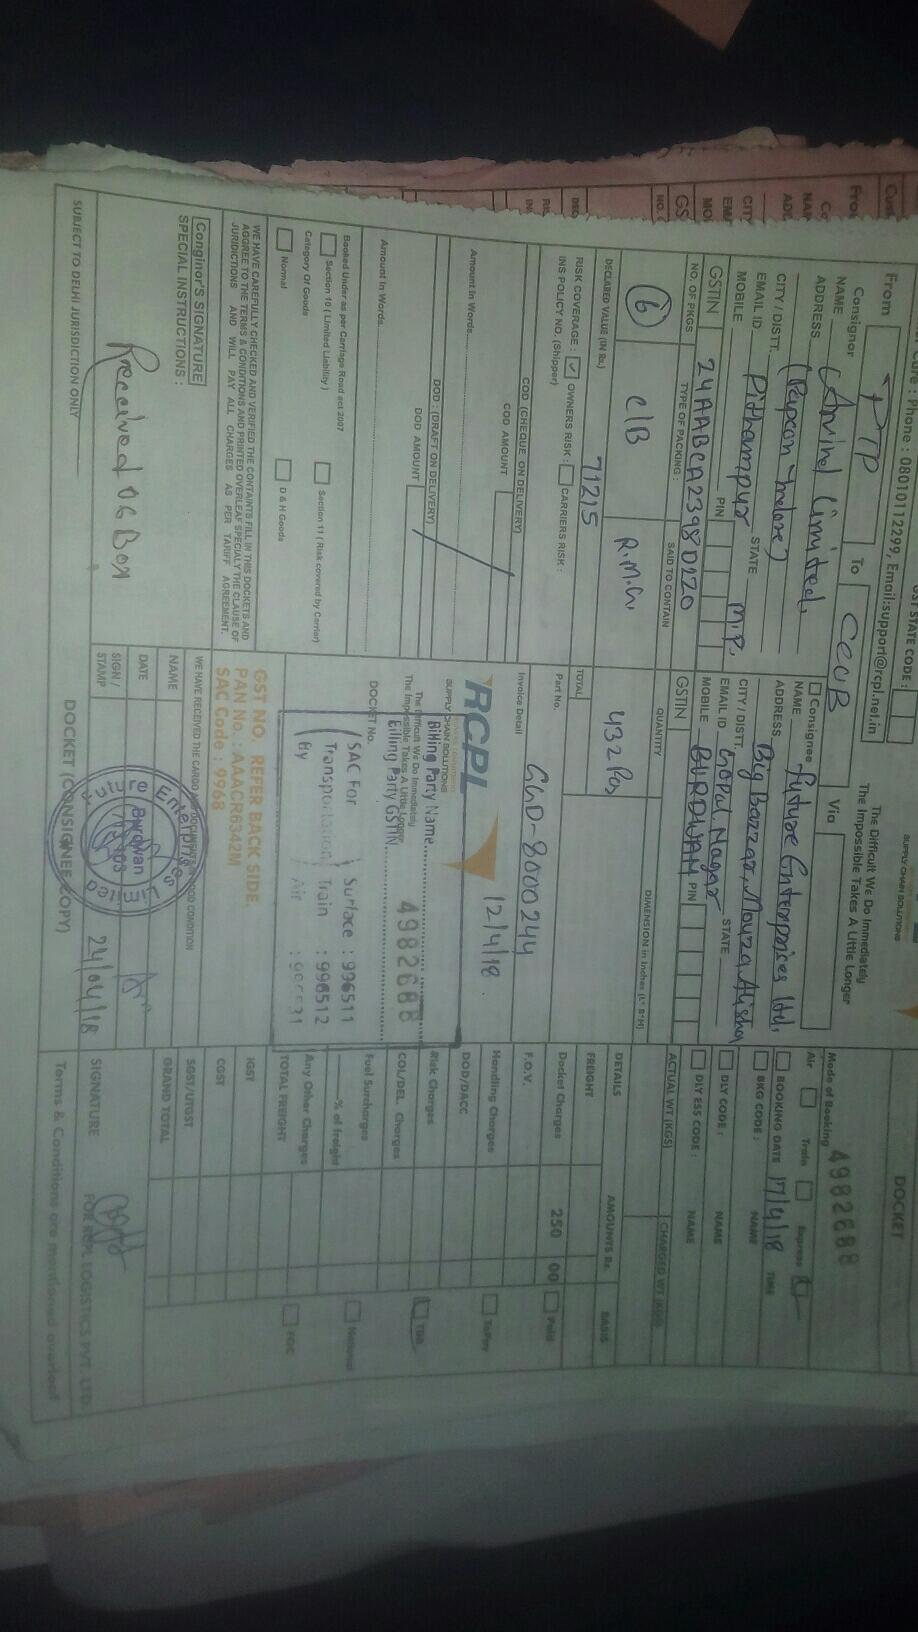 DOCKET
SUPPLY CHAIN SOLUTIONS
The Difficult We Do Immediately
The Impossible Takes A Little Longer
GST STATE CODE :
Care : Phone : 08010112299, Email:support@rcpl.net.in
From PTP To CCUB Via
4982688
Mode of Booking
Air Train Express
Consignor
NAME Arvind Limited,
ADDRESS
CITY / DISTT.
EMAIL ID Pithampur STATE M.P.
MOBILE PIN
GSTIN 24AABCA2398D1Z0
Consignee
NAME Future Enterprises Ltd.
ADDRESS Big Bazzar, Mouza Alisha
CITY / DISTT. Gopal Nagar STATE
EMAIL ID
MOBILE BURDWAN PIN
GSTIN
BOOKING DATE 17/4/18 TIME
BKG CODE : NAME
DLY CODE : NAME
DLY ESS CODE : NAME
NO. OF PKGS TYPE OF PACKING : SAID TO CONTAIN QUANTITY DIMENSION in Inches (L* B*H) ACTUAL WT (KGS) CHARGED WT (KGS)
6 C/B R.M.G. 432 Pcs
DETAILS AMOUNTS Rs. BASIS
DECLARED VALUE (IN Rs.) 71215
TOTAL
RISK COVERAGE : OWNERS RISK : CARRIERS RISK :
INS POLICY NO. (Shipper)
Part No.
Invoice Detail GGD-8000244
12/4/18
COD (CHEQUE ON DELIVERY)
COD AMOUNT
Amount In Words
DOD : (DRAFT ON DELIVERY)
DOD AMOUNT
Amount In Words
RCPL
SUPPLY CHAIN SOLUTIONS
The Difficult We Do Immediately
The Impossible Takes A Little Longer
Billing Party Name
Billing Party GSTIN
DOCKET No. 4982688
SAC For Surface : 996511
Transportation Train : 996512
By Air
FREIGHT
Docket Charges 250 00 Paid
F.O.V.
Handling Charges ToPay
DOD/DACC
Risk Charges TBB
COL/DEL Charges
Fuel Surcharges National
% of freight
Any Other Charges FOC
TOTAL FREIGHT
IGST
CGST
SGST/UTGST
GRAND TOTAL
Booked Under as per Carriage Road act 2007
Section 10 ( Limited Liability ) Section 11 ( Risk covered by Carrier)
Category Of Goods
Normal D & H Goods
WE HAVE CAREFULLY CHECKED AND VERIFIED THE CONTAINTS FILL IN THIS DOCKETS AND
AGGREE TO THE TERMS & CONDITIONS AND PRINTED OVERLEAF SPECIALY THE CLAUSE OF
JURIDICTIONS AND WILL PAY ALL CHARGES AS PER TARIFF AGREEMENT.
GST NO. REFER BACK SIDE.
PAN No. : AAACR6342M
SAC Code : 9968
Conginor'S SIGNATURE
SPECIAL INSTRUCTIONS :
Received 06 Box
WE HAVE RECEIVED THE CARGO DOCUMENTS GOOD CONDITION
NAME
DATE
SIGN / STAMP 24/04/18
Future Enterprises Limited
Bardwan
SIGNATURE
FOR RCPL LOGISTICS PVT. LTD.
SUBJECT TO DELHI JURISDICTION ONLY
DOCKET (CONSIGNEE COPY)
Terms & Conditions are mentioned overleaf